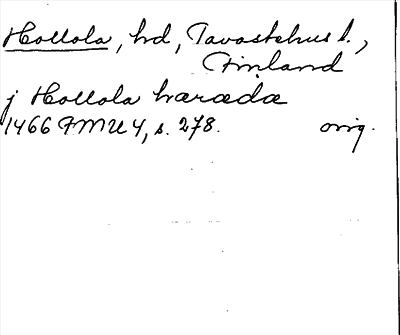 Hollola, hd, Tavastehus l.,
Finland
j Hollola hæradæ
1466 FMU 4, s. 278. orig.